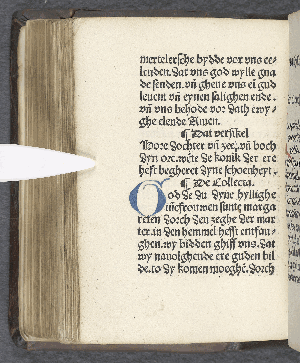 mertelersche bydde vor vns ee-
lenden. dat vns god wylle gna
de senden. vñ ghene vns ei gud
leuent vñ eynen salighen ende.
vñ vns behode vor dath ewy-
ghe elende Amen.
¶ Dat versikel
Hore dochter vñ zee, vñ boch
dyn ore. wēte de konik der ere
heft begheret dyne schoenheyt.
¶ De Collecta.
God de du dyne hyllighe
iūcfrouwen sunte marga
reten dorch den zeghe der mar
ter. in den hemmel hefft entfan-
ghen. wy bidden ghiff vns. dat
wy nauolghende ere guden bil
de. to dy komen moeghē. dorch